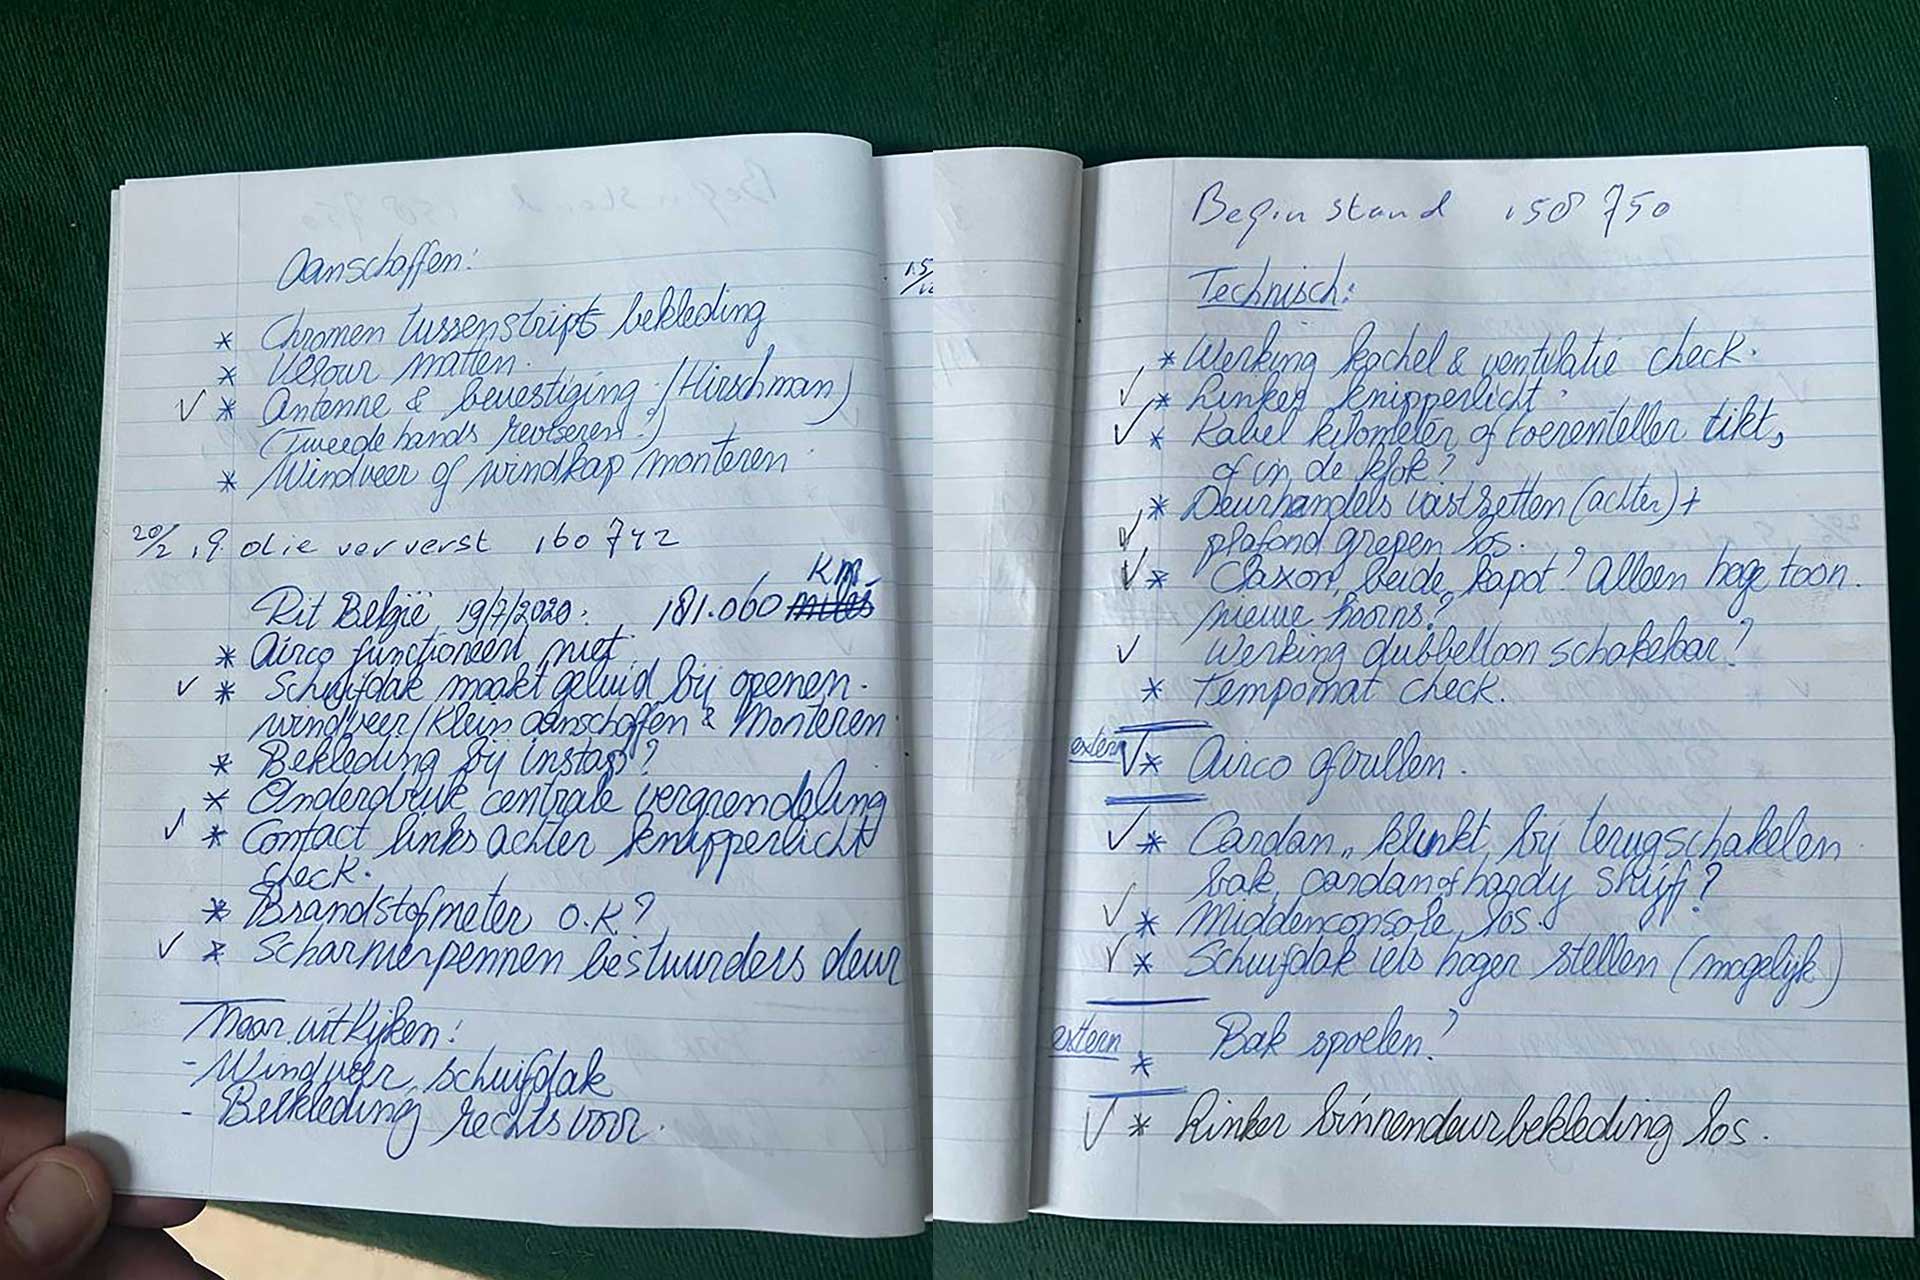 Aanschaffen:
* Chromen tussenstrips bekleding
* Velour matten.
√ * Antenne & bevestiging. (Hirschman)
(Tweede hands reviseren!)
* Windveer of windkap monteren.
20/2 19. olie ververst 160 742
Km
Rit België, 19/7/2020: 181.060 miles
* Airco functioneert niet.
√ * Schuifdak maakt geluid bij openen.
windveer/klein aanschaffen & monteren.
* Bekleding bij instap?
* Onderdruk centrale vergrendeling
√ * Contact links achter knipperlicht
check.
* Brandstofmeter O.K?
√ * Scharnierpennen bestuurders deur
Naar uitkijken:
- Windveer, schuifdak
- Bekleding rechtsvoor.
15/12
Begin stand 158 750
Technisch:
* Werking kachel & ventilatie check.
√ * Linker knipperlicht.
√ * Kabel kilometer of toerenteller tikt,
of in de klok?
* Deurhandels vastzetten (achter) +
√ plafond grepen los.
√ * Claxon, beide kapot? Alleen hoge toon.
nieuwe hoorns?
√ Werking dubbeltoon schakelbaar?
* Tempomat check.
extern √ * Airco afvullen.
√ * Cardan „ klinkt bij terugschakelen
bak, cardan of hardy schijf?
√ * Middenconsole los.
√ * Schuifdak iets hoger stellen (mogelijk)
extern * Bak spoelen?
√ * Linker binnendeurbekleding los.